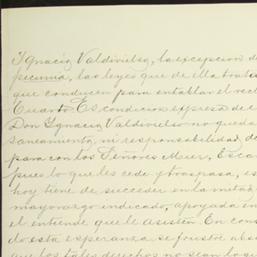 Ygnacio Valdivielso, la excepcion de
pecunia, las leyes que de ella tratan
que conducen para entablar el recl
Cuarta: Es condicion expresa de e
Don Ygnacio Valdivielso no queda
saneamiento, ni responsabilidad, de
para con los Señores Muer, Esca
pues lo que les cede y traspasa, es
hoy tiene de succeder en la mitad
mayorazgo indicado, apoyada en
el entiende que le asisten. En cons
do esta esperanza se frustre abso
que los tales derechos no sean lo sufi